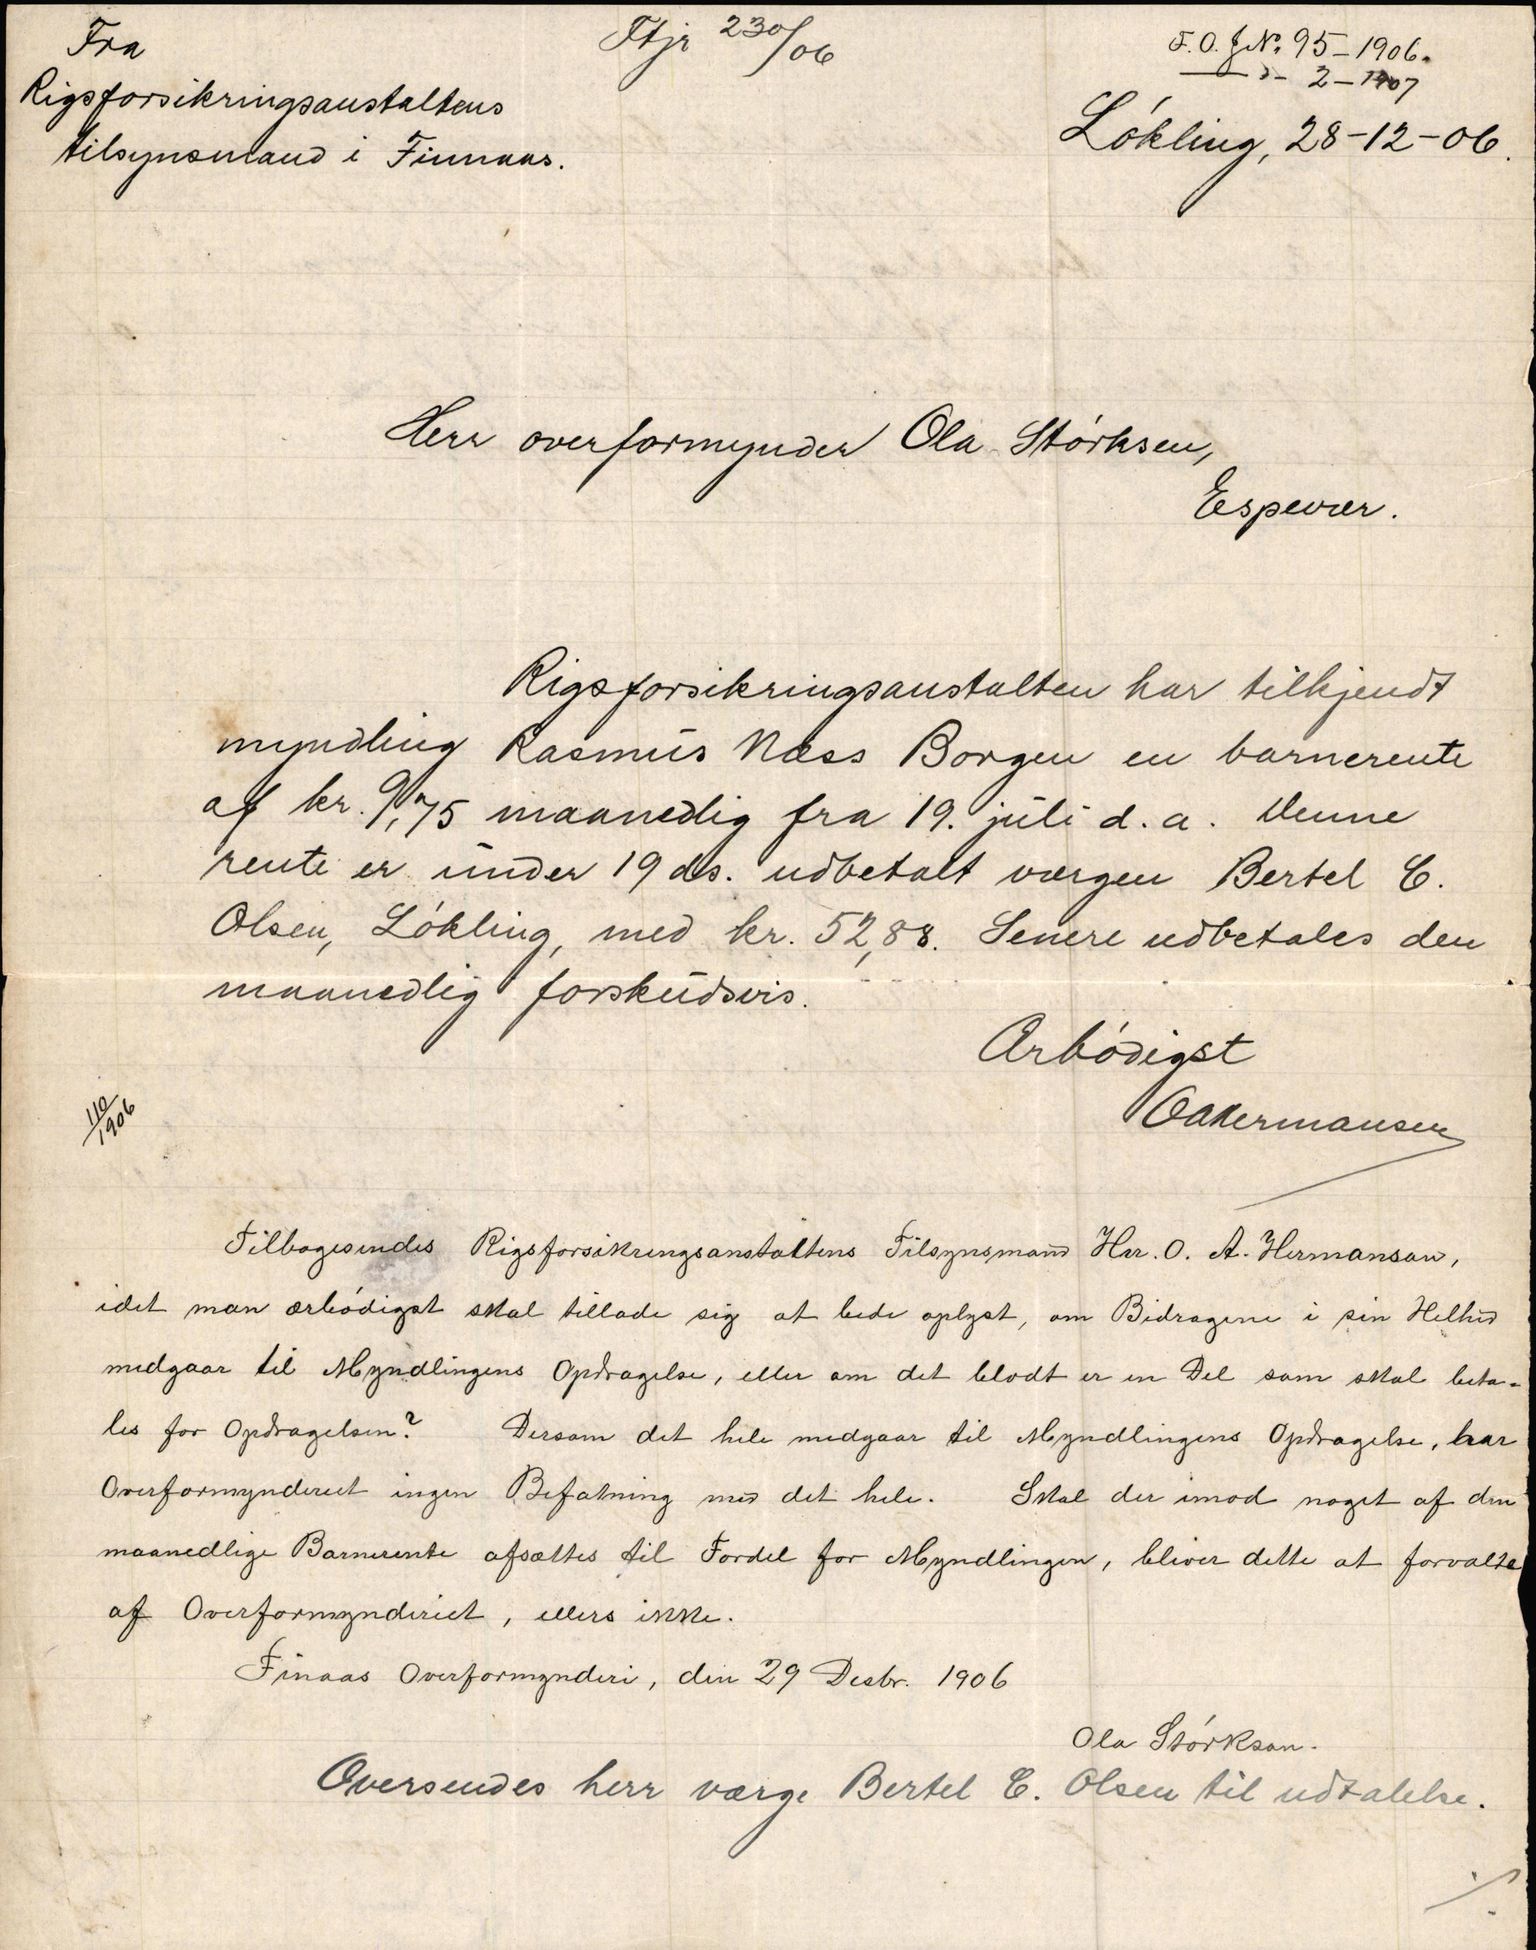 Fra
Rigsforsikringsanstaltens
tilsynsmand i Finnaas.
Ftjr 230/06
F.O. J.No. 95-1906.
— " — 2-1907
Løkling, 28-12-06.
Herr overformynder Ola Størksen,
Espevær.
Rigsforsikringsanstalten har tilkjendt
myndling Rasmus Næss Borgen en barnerente
af kr. 9,75 maanedlig fra 19. juli d.a. Denne
rente er under 19 ds. udbetalt værgen Bertel C.
Olsen, Løkling, med kr. 52,88. Senere udbetales den
maanedlig forskudsvis.
Ærbødigst
OAHermansen
110/1906
Tilbagesendes Rigsforsikringsanstaltens Tilsynsmand Hr. O. A. Hermansen,
idet man ærbødigst skal tillade sig at bede oplyst, om Bidragene i sin Helhed
medgaar til Myndlingens Opdragelse, eller om det blodt er en Del som skal beta-
les for Opdragelsen? Dersom det hele medgaar til Myndlingens Opdragelse, har
Overformynderiet ingen Befatning med det hele. Skal der imod noget af den
maanedlige Barnerente afsættes til Fordel for Myndlingen, bliver dette at forvalte
af Overformynderiet, ellers ikke.
Finaas Overformynderi, den 29 Desbr. 1906
Ola Størksen.
Oversendes herr værge Bertel C. Olsen til udtalelse.
./.